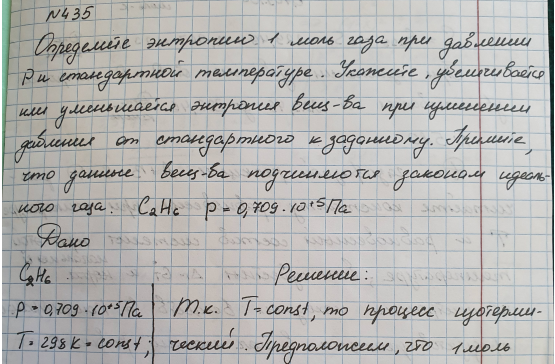 N435
Определите энтропию 1 моль газа при давлении
P и стандартной температуре. Укажите, увеличивается
или уменьшается энтропия вещ-ва при изменении
давления от стандартного к заданному. Примите,
что данные вещ-ва подчиняются законам идеаль-
ного газа. C₂H₆ P = 0,709·10⁺⁵Па
Дано
C₂H₆ Решение:
P = 0,709·10⁺⁵Па Т.к. T=const, то процесс изотерми-
T = 298 K = const; ческий. Предположим, что 1 моль